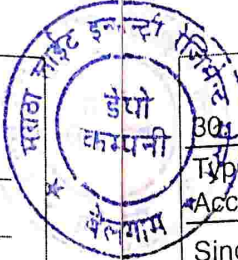 मराठा लाईट इन्फन्ट्री रेजिमेंट
डेपो
कम्पनी
बेलगाम
30
Typ
Acc
Sinc